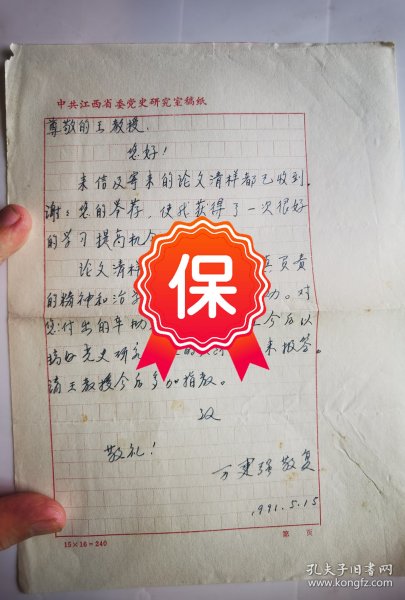 中共江西省委党史研究室稿纸
尊敬的王教授.
您好！
来信及寄来的论文清样都已收到.
谢谢您的荐荐,使我获得了一次很好
的学习提高机会
论文清样 真负责
的精神和治学 功。对
您付出的辛勤 今后以
搞好党史研究 来报答。
请王教授今后多加指教。
致
敬礼！
万更强敬复
1991.5.15
15×16=240
第 页
保
孔夫子旧书网
www.kongfz.com